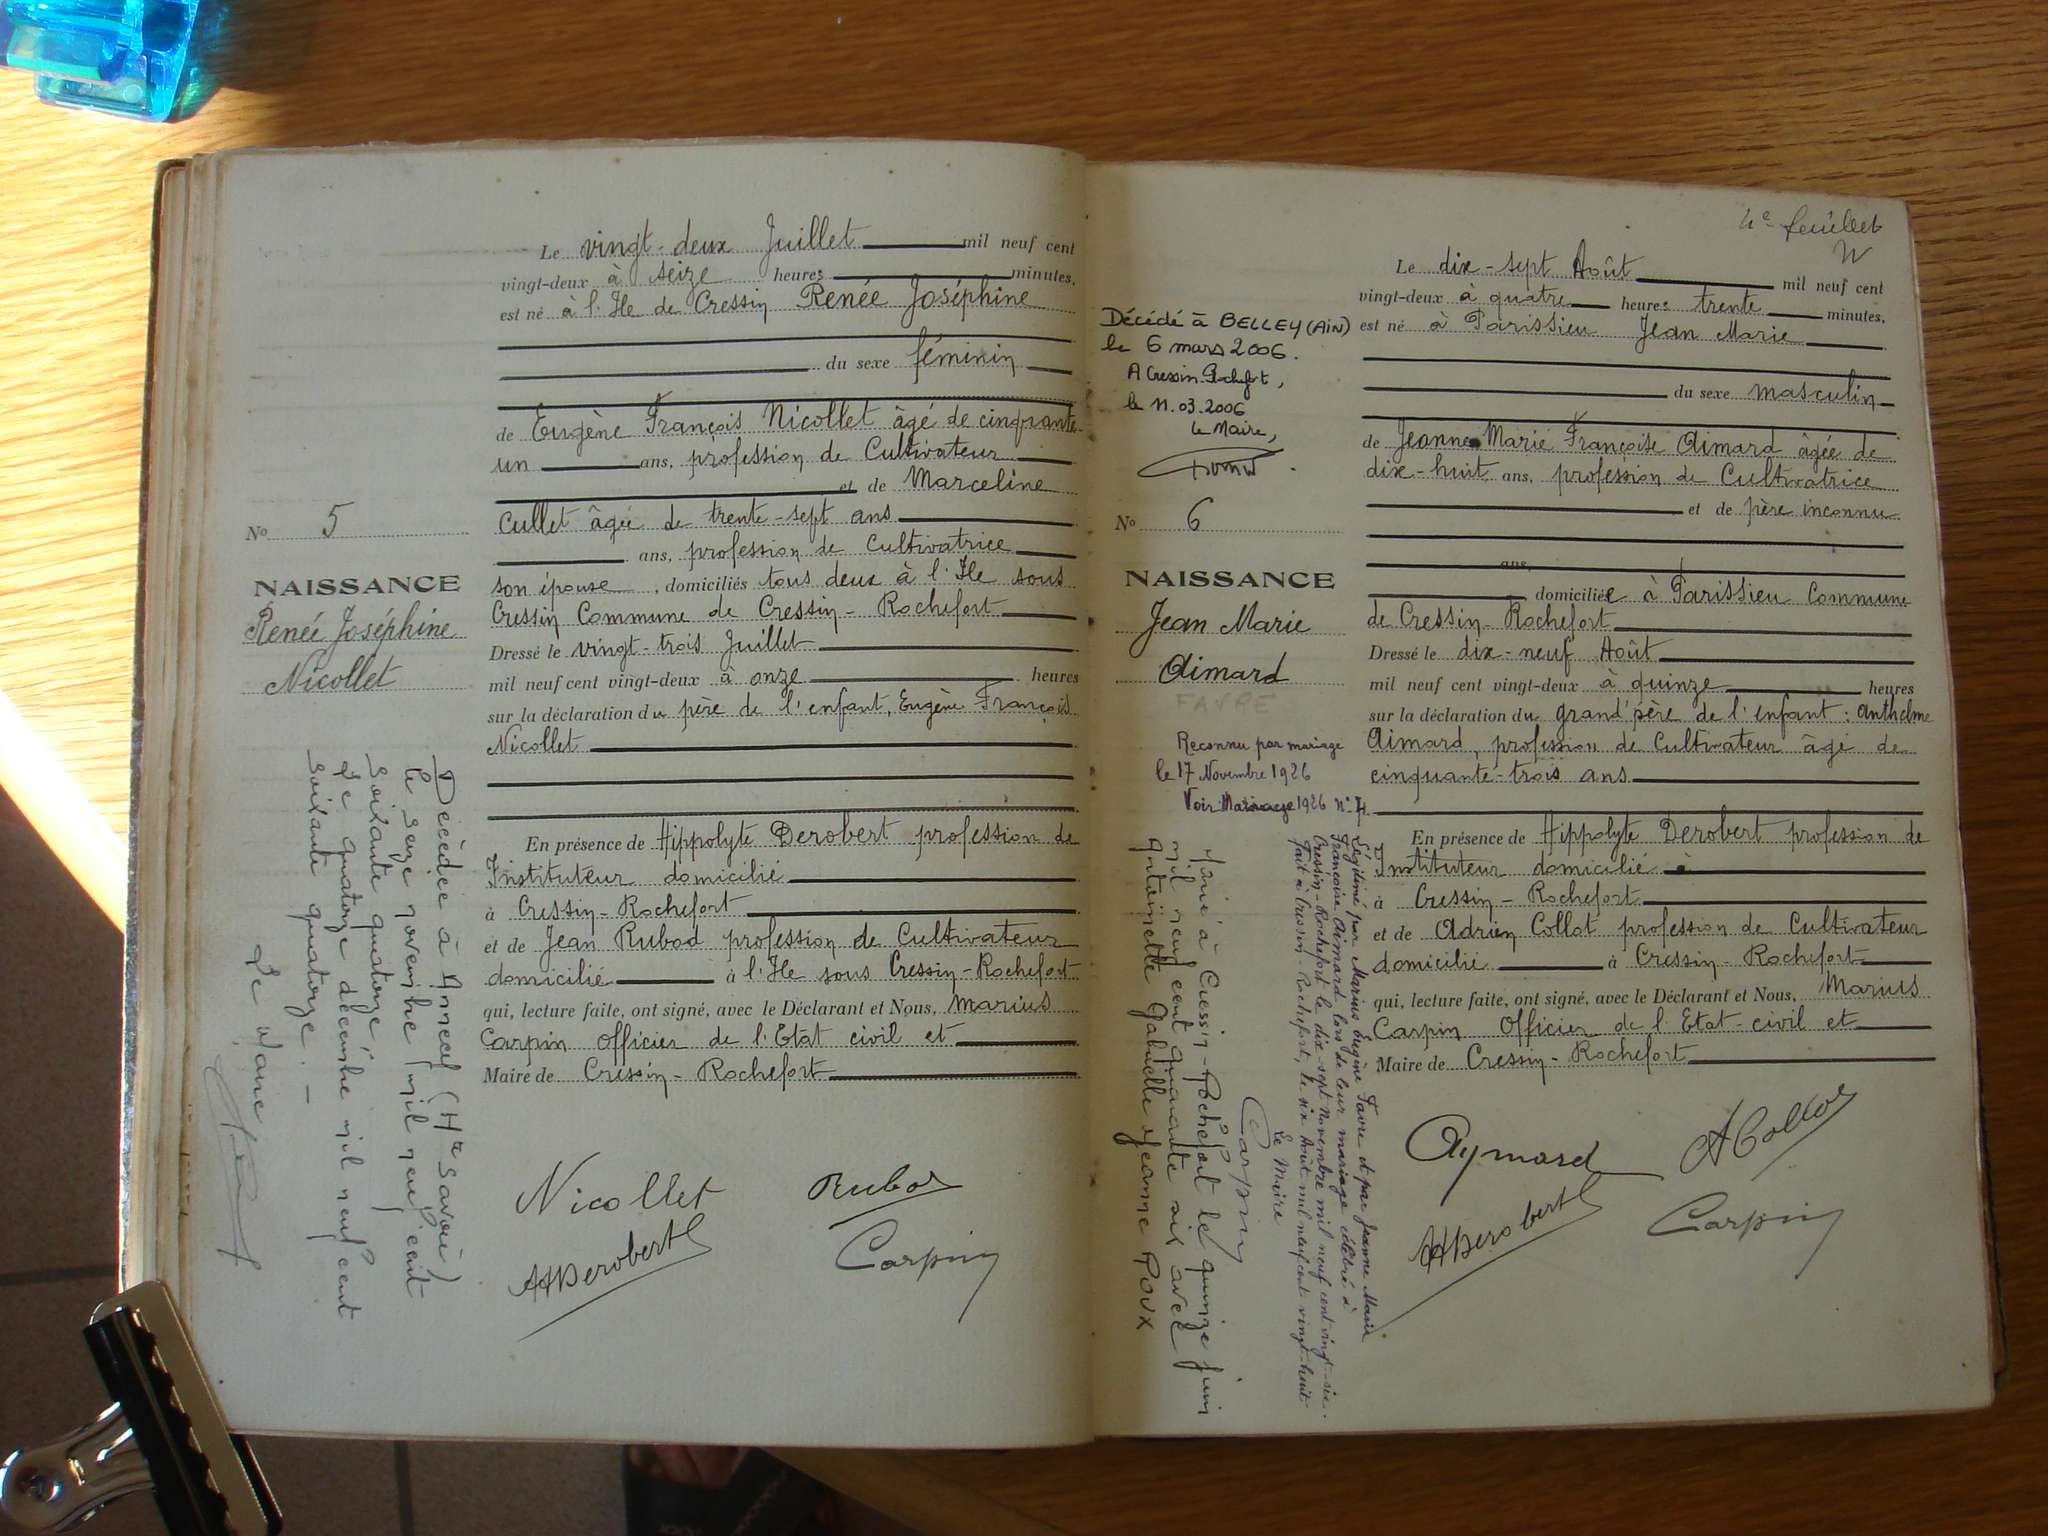 Le vingt-deux Juillet mil neuf cent
vingt-deux à seize heures minutes,
est né à l'Ile de Cressin Renée Joséphine
du sexe féminin
de Eugène François Nicollet âgé de cinquante-
un ans, profession de Cultivateur
et de Marceline
Cullet âgée de trente-sept ans
ans, profession de Cultivatrice
son épouse, domiciliés tous deux à l'Ile sous
Cressin Commune de Cressin-Rochefort
Dressé le vingt-trois Juillet
mil neuf cent vingt-deux à onze heures
sur la déclaration du père de l'enfant, Eugène François
Nicollet
En présence de Hippolyte Derobert profession de
Instituteur domicilié
à Cressin-Rochefort
et de Jean Rubod profession de Cultivateur
domicilié à l'Ile sous Cressin-Rochefort
qui, lecture faite, ont signé, avec le Déclarant et Nous, Marius
Carpin Officier de l'Etat civil et
Maire de Cressin-Rochefort
Nicollet
Rubod
HDerobert
Carpin
No 5
NAISSANCE
Renée Joséphine
Nicollet
Décédée à Annecy (Hte Savoie)
le seize novembre mil neuf cent
soixante quatorze.
Le quatorze décembre mil neuf cent
soixante quatorze. -
Le Maire
4e feuillet
Le dix-sept Août mil neuf cent
vingt-deux à quatre heures trente minutes,
est né à Parissieu Jean Marie
du sexe masculin
de Jeanne Marie Françoise Aimard âgée de
dix-huit ans, profession de Cultivatrice
et de père inconnu
ans,
domiciliée à Parissieu Commune
de Cressin-Rochefort
Dressé le dix-neuf Août
mil neuf cent vingt-deux à quinze heures
sur la déclaration du grand'père de l'enfant: Anthelme
Aimard, profession de Cultivateur âgé de
cinquante-trois ans
En présence de Hippolyte Derobert profession de
Instituteur domicilié à
à Cressin-Rochefort
et de Adrien Collot profession de Cultivateur
domicilié à Cressin-Rochefort
qui, lecture faite, ont signé, avec le Déclarant et Nous, Marius
Carpin Officier de l'Etat-civil et
Maire de Cressin-Rochefort
Aymard
ACollot
HDerobert
Carpin
Décédé à BELLEY (AIN)
le 6 mars 2006.
A Cressin Rochefort,
le 11.03.2006
Le Maire,
No 6
NAISSANCE
Jean Marie
Aimard
FAVRE
Reconnu par mariage
le 17 Novembre 1926
Voir Mariage 1926 n° 4
Légitimé par Marius Eugène Favre et par Jeanne Marie
Françoise Aimard lors de leur mariage célébré à
Cressin-Rochefort le dix-sept novembre mil neuf cent vingt-six.
Fait à Cressin-Rochefort, le six Août mil neuf cent vingt-huit
Le Maire
Carpin
Marié à Cressin-Rochefort le quinze juin
mil neuf cent quarante six avec
Antoinette Gabrielle Jeanne Poux